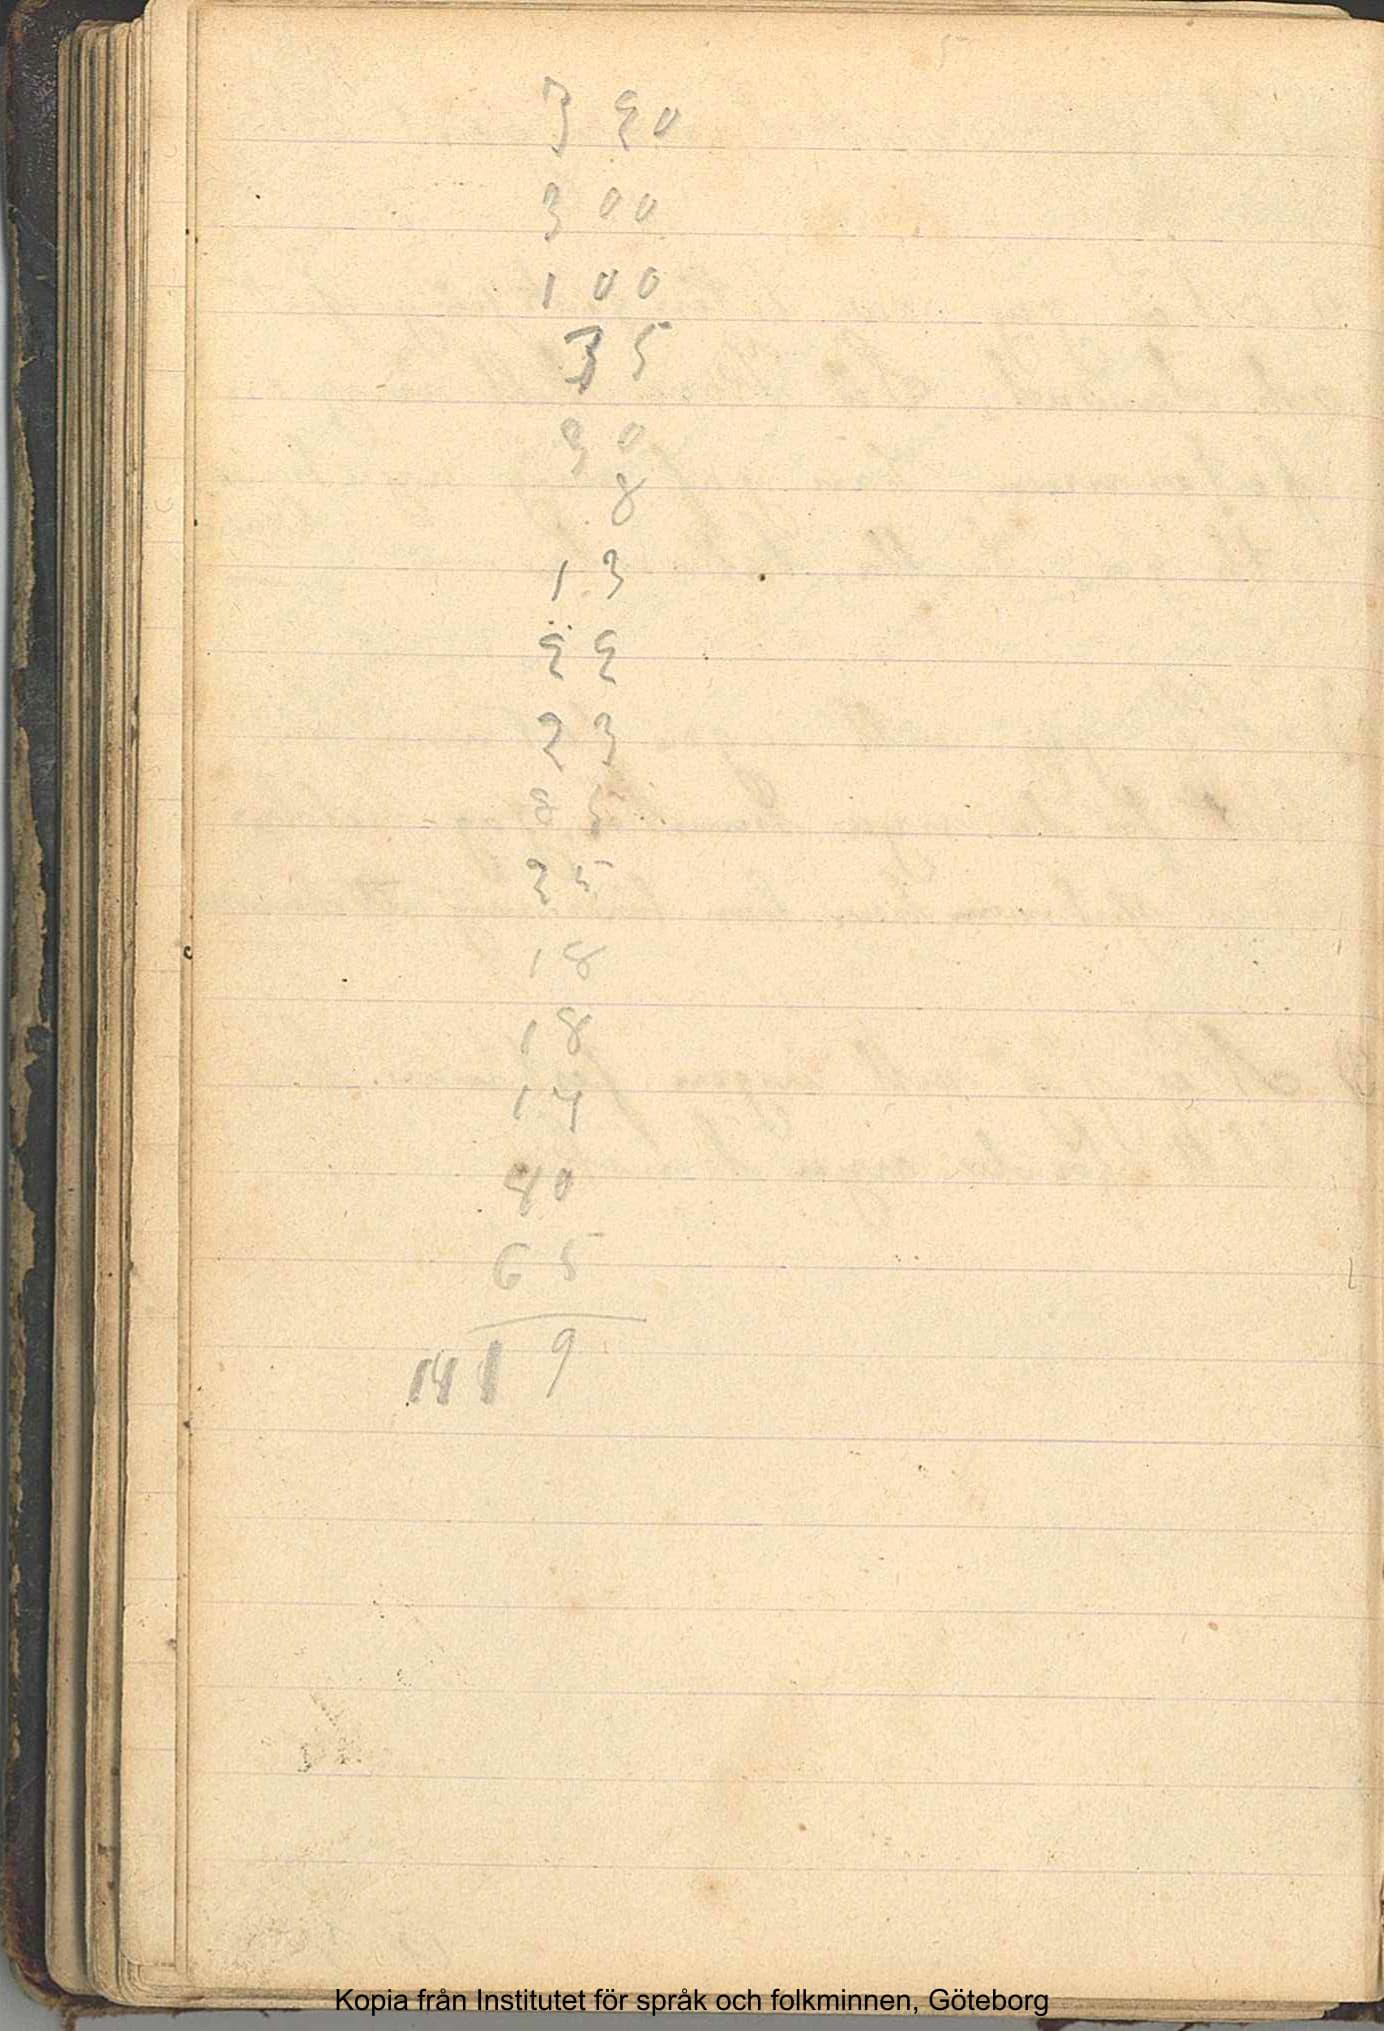 3 20
3 00
1 00
35
30
8
13
22
23
85
25
18
18
17
40
65
1419
Kopia från Institutet för språk och folkminnen, Göteborg